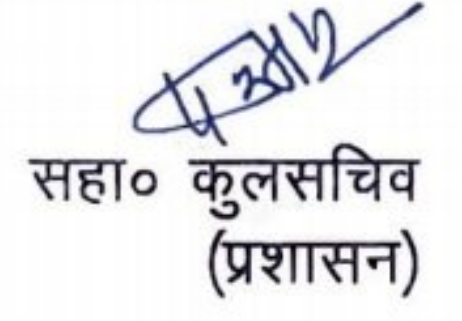 सहा० कुलसचिव
(प्रशासन)